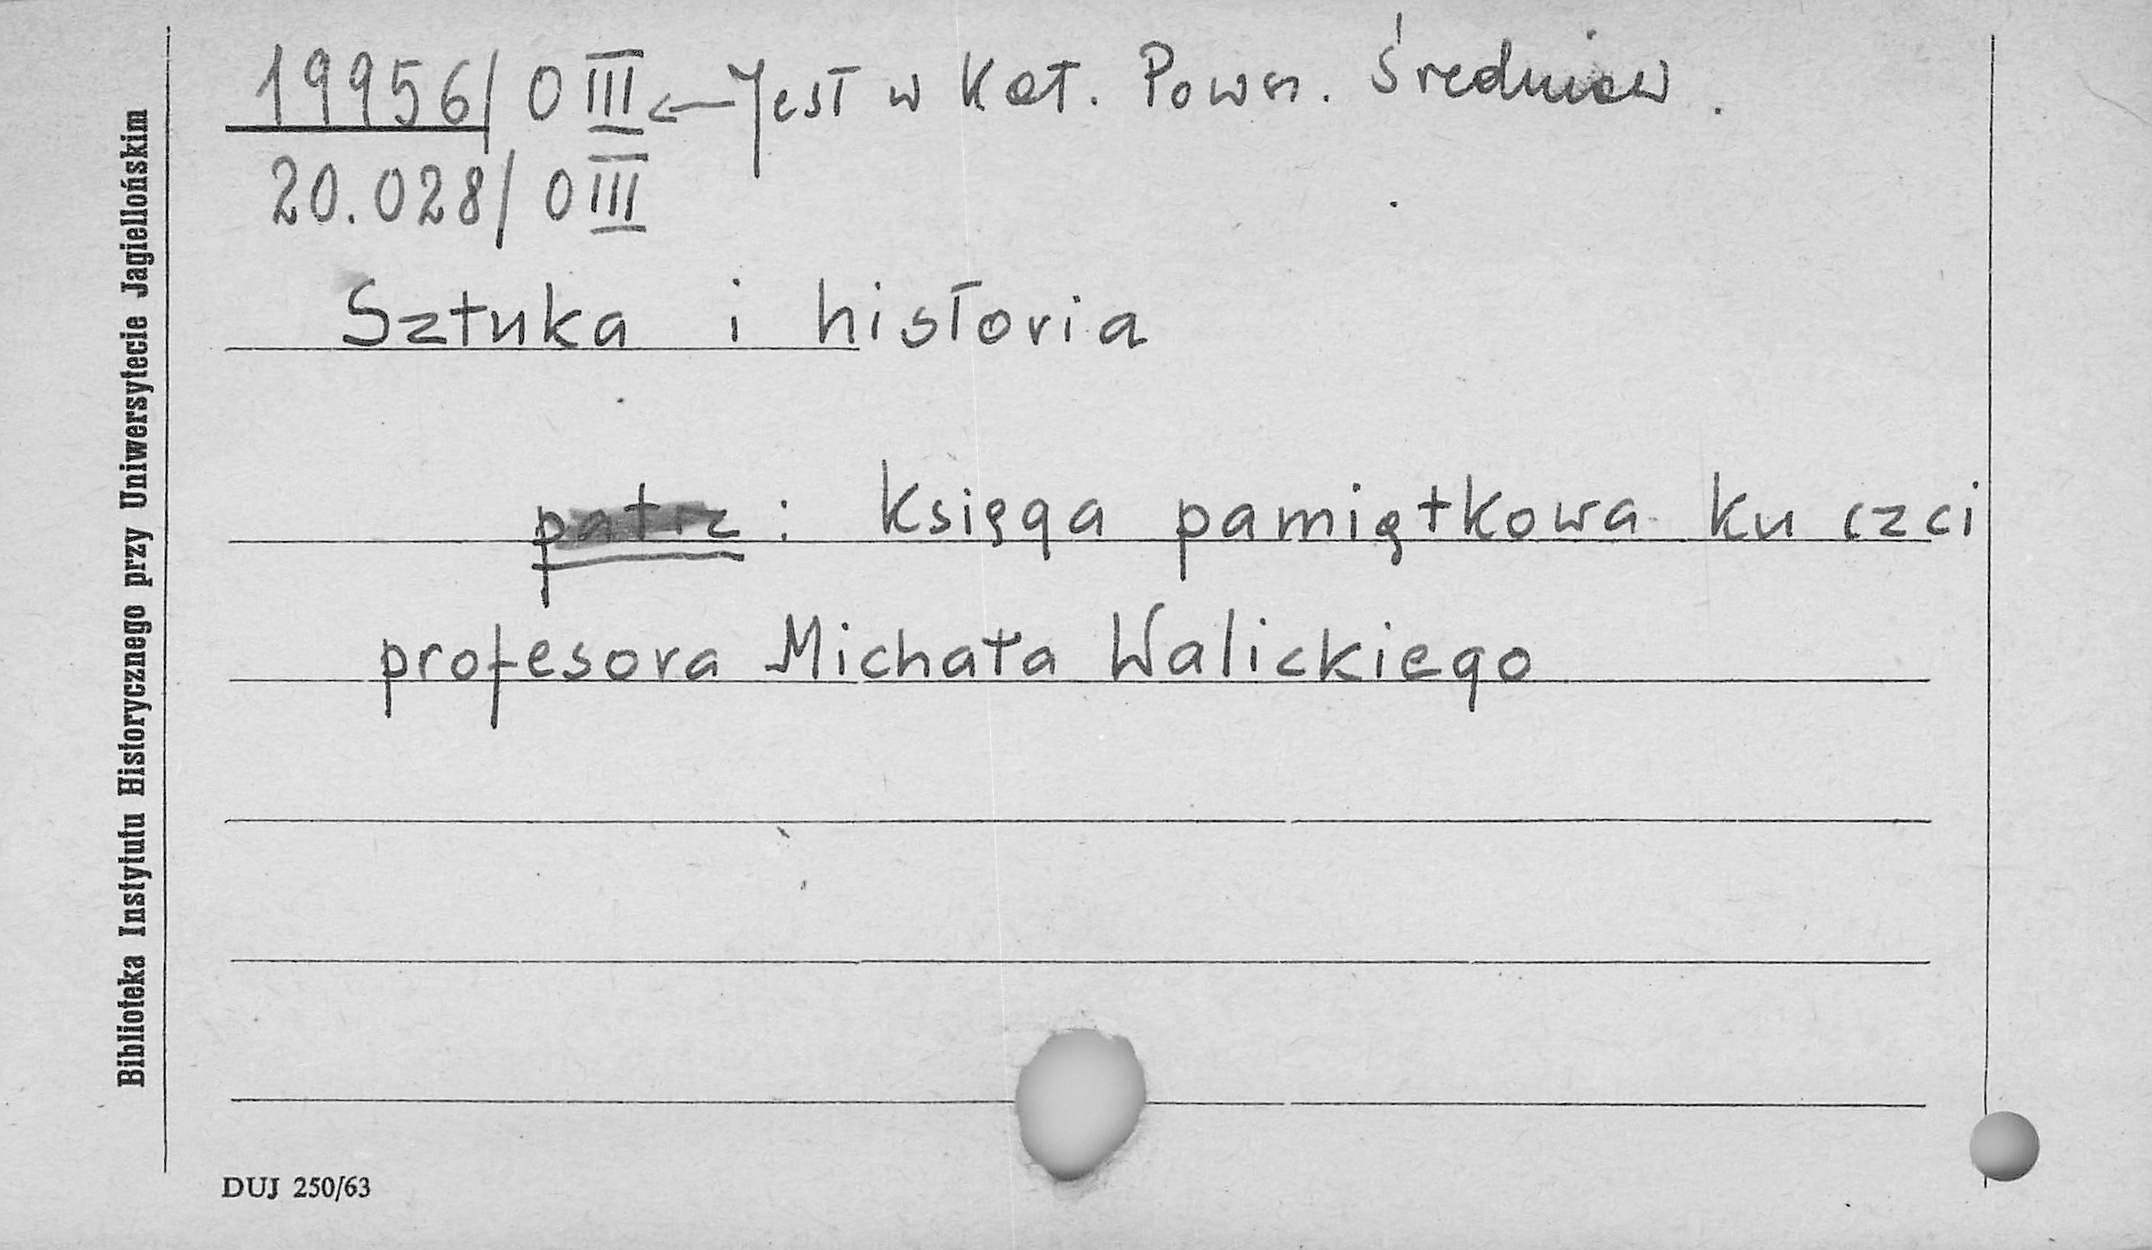 19956/ O III ← Jest w Kat. Powsz. Średniow.
20.028/ O III
Sztuka i historia
patrz: Księga pamiątkowa ku czci
profesora Michała Walickiego
Biblioteka Instytutu Historycznego przy Uniwersytecie Jagiellońskim
DUJ 250/63